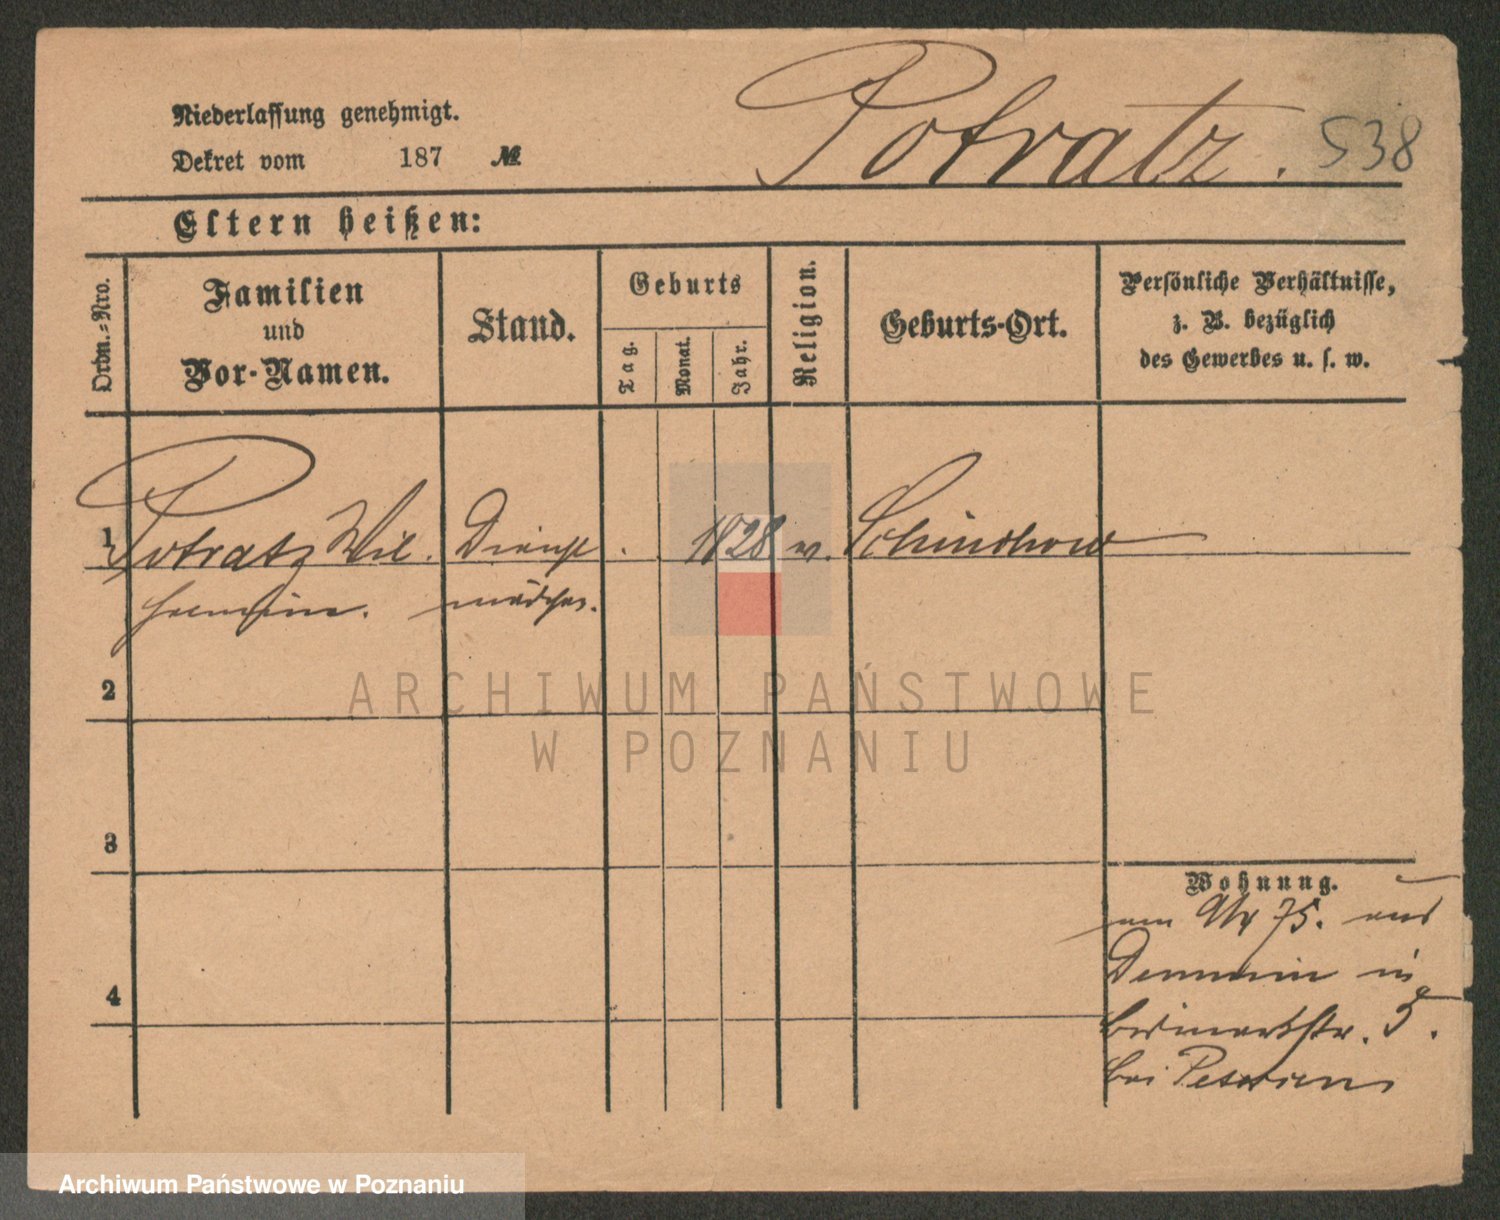 Niederlassung genehmigt.
Dekret vom 187 №
Potratz. 538
Eltern heißen:
Ordn.=Nro.
Familien
und
Vor-Namen.
Stand.
Geburts
Tag.
Monat.
Jahr.
Religion.
Geburts-Ort.
Persönliche Verhältnisse,
z. B. bezüglich
des Gewerbes u. s. w.
1 Potratz Wil. Dienst 1828
mädchen.
2
3
4
Wohnung.
75. aus
Demmin in
Bismarkstr. 5.
bei
ARCHIWUM PAŃSTWOWE
W POZNANIU
Archiwum Państwowe w Poznaniu